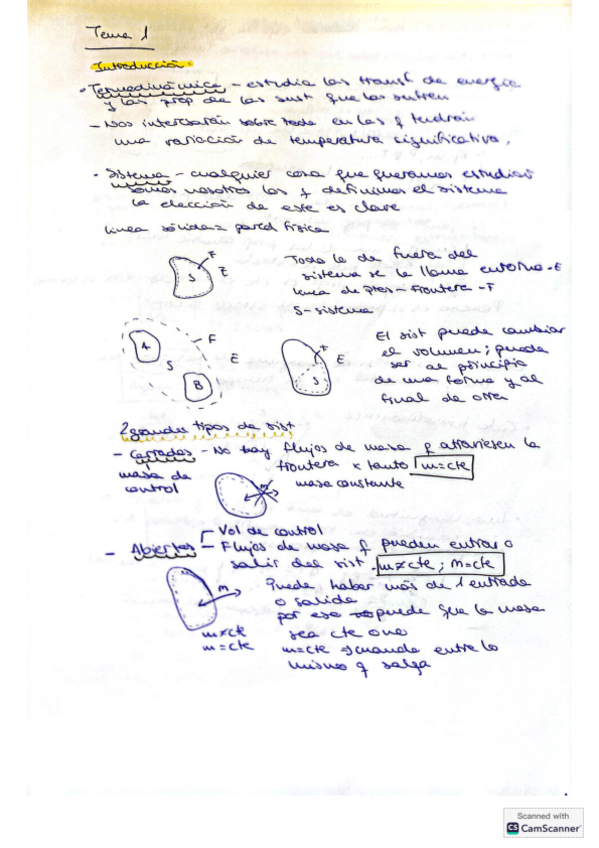 Tema 1
Introducción
- Termodinámica - estudia las transf de energía
y las prop de las sust que las sufren
- Nos interesarán sobre todo en las q tendrán
una variación de temperatura significativa.
- Sistema - cualquier cosa que queramos estudiar
somos nosotros los q definimos el sistema
la elección de este es clave
linea sólida = pared física
F
S
E
Todo lo de fuera del
sistema se le llama entorno - E
linea de ptos - frontera - F
S - sistema
A
F
S
E
B
F
E
S
El sist puede cambiar
el volumen; puede
ser al principio
de una forma y al
final de otra
2 grandes tipos de sist
- Cerrados - No hay flujos de masa q atraviesen la
frontera x tanto m=cte
masa de
control
m
masa constante
- Abiertos - Vol de control
- Flujos de masa q pueden entrar o
salir del sist. m≠cte; m=cte
m
Puede haber más de 1 entrada
o salida
por eso puede que la masa
sea cte o no
m≠cte
m=cte
m=cte cuando entre lo
mismo q salga
Scanned with
CS CamScanner